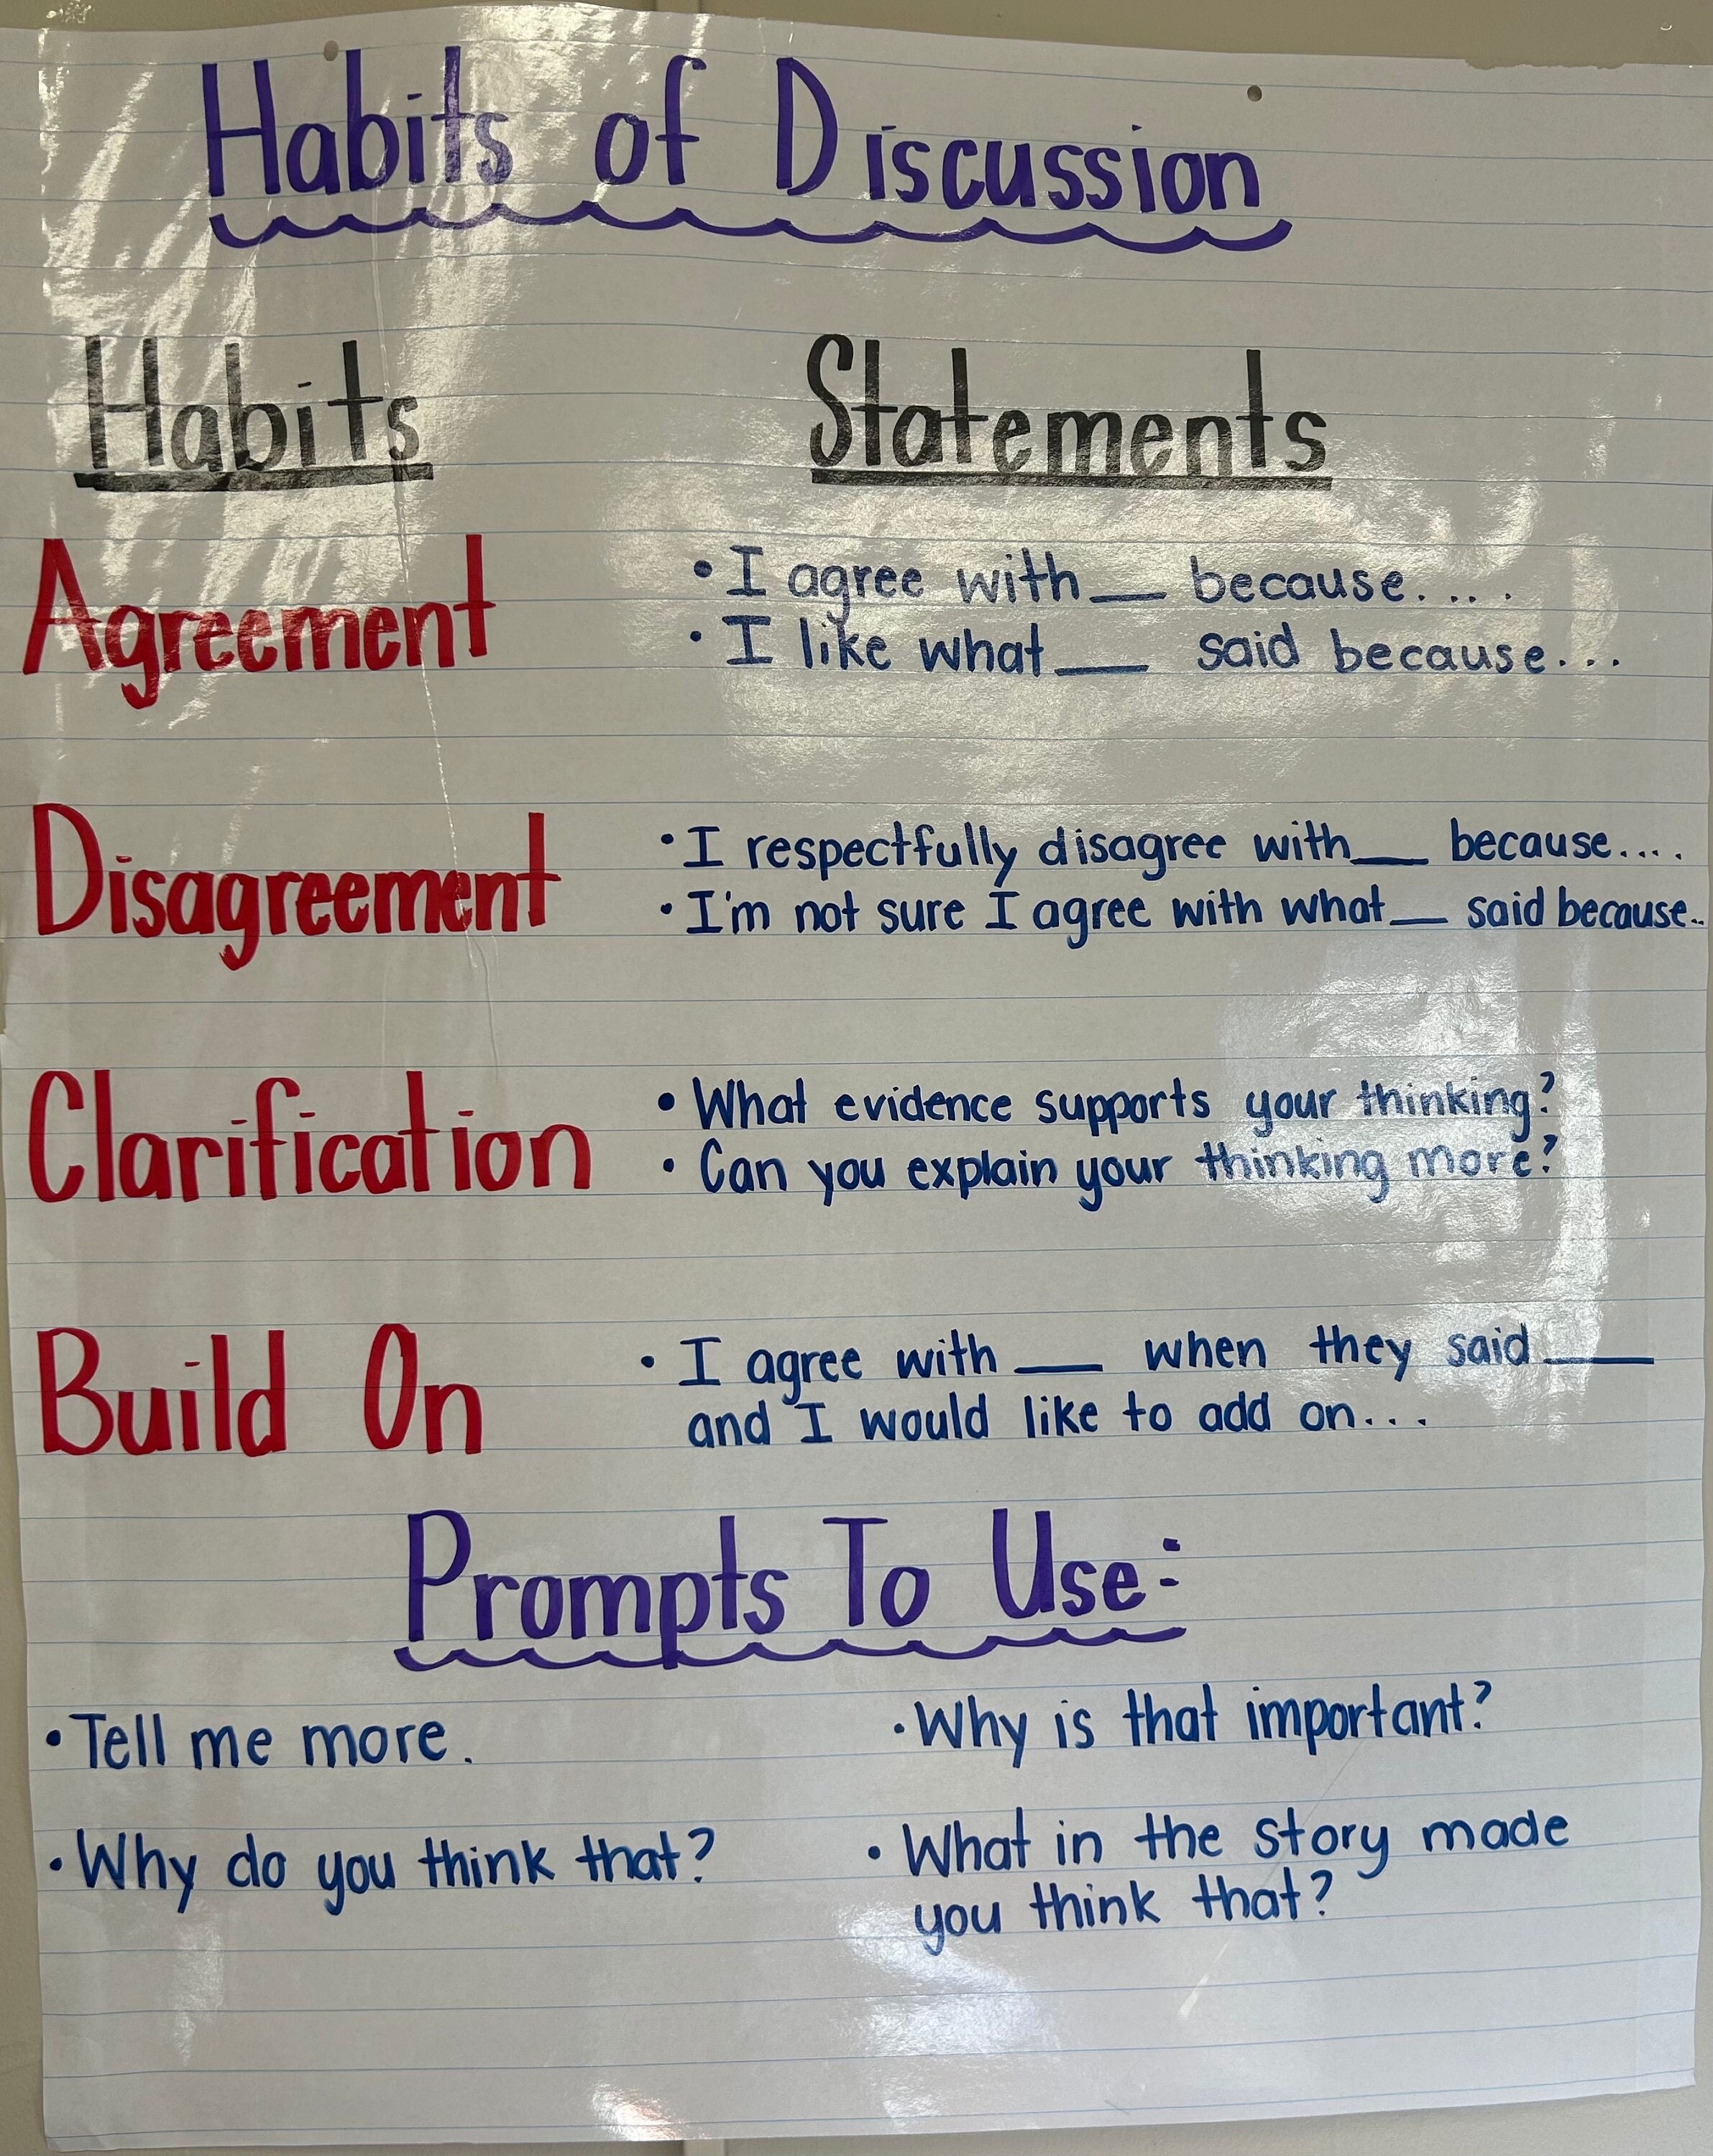 Habits of Discussion
Habits Statements
Agreement
• I agree with __ because....
• I like what __ said because...
Disagreement
• I respectfully disagree with __ because....
• I'm not sure I agree with what __ said because..
Clarification
• What evidence supports your thinking?
• Can you explain your thinking more?
Build On
• I agree with __ when they said __
and I would like to add on...
Prompts To Use:
• Tell me more.
• Why is that important?
• Why do you think that?
• What in the story made
you think that?